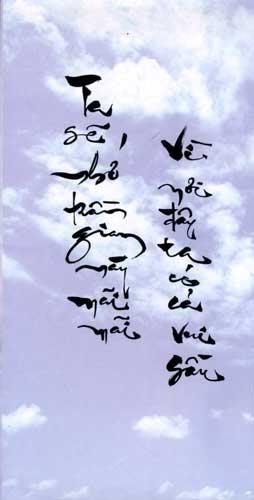 Ta sẽ nhớ trần gian này mãi mãi
Về nơi đây ta có cả vui sầu